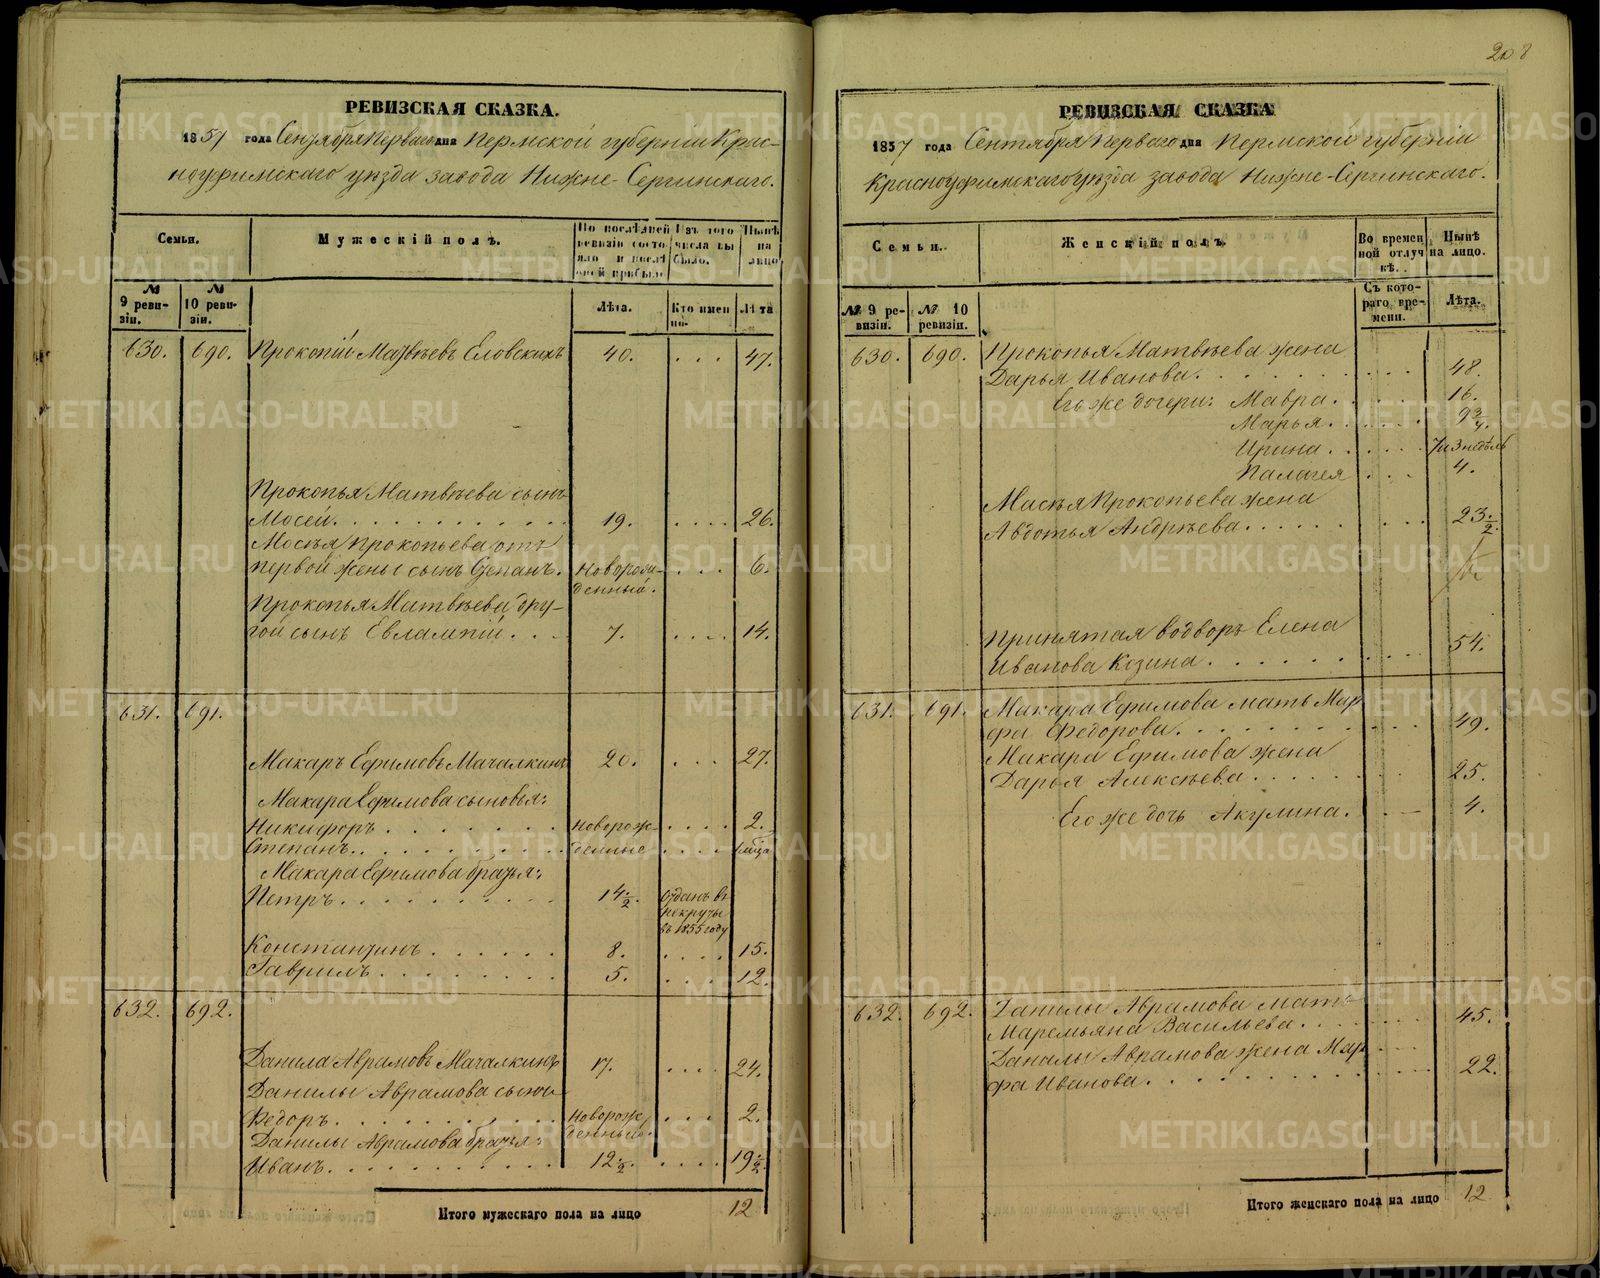 208
РЕВИЗСКАЯ СКАЗКА.
1857 года Сентября Перваго дня Пермской губерніи Крас-
ноуфимскаго уѣзда завода Нижне-Сергинскаго.
Семьи.
Мужескій полъ.
По послѣдней ревизіи состояло и послѣ оной прибыло
Изъ того числа выбыло.
Нынѣ на лицо
№ 9 ревизіи.
№ 10 ревизіи.
Лѣта.
Кто именно.
Лѣта
630. 690. Прокопій Матвѣевъ Еловскихъ 40. . . . 47.
Прокопья Матвѣева сынъ
Мосей. 19. . . . . 26.
Мосѣя Прокопьева отъ
первой жены сынъ Степанъ. Новорож- . . . . 6.
денный.
Прокопья Матвѣева дру-
гой сынъ Евлампій. 7. . . . . 14.
631. 691.
Макаръ Ефимовъ Мачалкинъ 20. . . . 27.
Макара Ефимова сыновья:
Никифоръ. Новорож- . . . . 2.
Степанъ. денные . . . .
Макара Ефимова братья:
Петръ. 14 1/2. Отданъ въ
некруты
въ 1855 году
Константинъ. 8. . . . . 15.
Гаврилъ. 5. . . . 12.
632. 692.
Данила Аврамовъ Мачалкинъ 17. . . . . 24.
Данилы Аврамова сынъ
Ѳедоръ. Новорож . . . 2.
денный.
Данилы Аврамова братья:
Иванъ. 12 1/2. . . . . 19 1/2.
Итого мужескаго пола на лицо 12
РЕВИЗСКАЯ СКАЗКА
1857 года Сентября Перваго дня Пермской губерніи
Красноуфимскаго уѣзда завода Нижне-Сергинскаго.
Семьи.
Женскій полъ.
Во временной отлучкѣ.
Нынѣ на лицо.
№ 9 ревизіи.
№ 10 ревизіи.
Съ котораго времени.
Лѣта.
630. 690. Прокопья Матвѣева жена
Дарья Иванова. 48.
Его же дочери: Мавра. 16.
Марья. 9 3/4.
Ирина. 7 и 3 недѣль
Палагея 4.
Мосѣя Прокопьева жена
Авдотья Андрѣева. 23 1/2.
Принятая во дворъ Елена
Иванова Козина. 54.
631. 691. Макара Ефимова мать Мар-
фа Федорова. 49.
Макара Ефимова жена
Дарья Алексѣева. 25.
Его же дочь Акулина. 4.
632. 692. Данилы Аврамова мать
Маремьяна Васильева. 45.
Данилы Аврамова жена Мар-
фа Иванова. 22.
Итого женскаго пола на лицо 12
METRIKI.GASO-URAL.RU